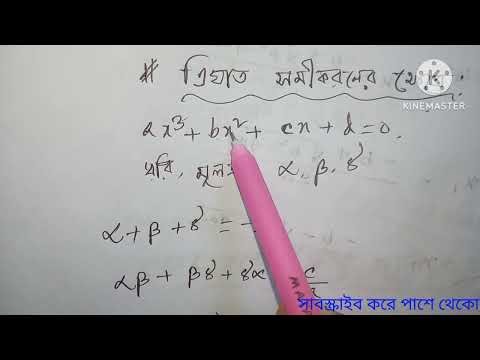 # ত্রিঘাত সমীকরনের
KINEMASTER
ax³ + bx² + cx + d = 0.
ধরি, α, β, γ
α + β + γ = -
αβ + βγ + γα c
সাবস্ক্রাইব করে পাশে থেকো